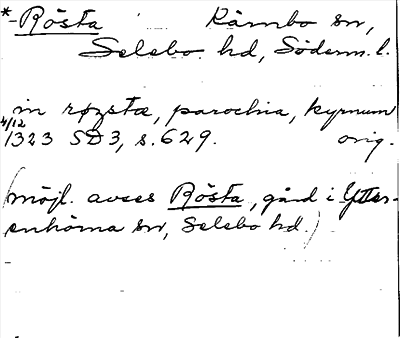 *-Rösta Kärnbo sn,
Selebo hd, Söderm. l.
in røzsta, parochia, kyrnum
4/12
1323 SD3, s. 629. orig.
(möjl. avses Rösta, gård i Ytter-
enhörna sn, Selebo hd.)